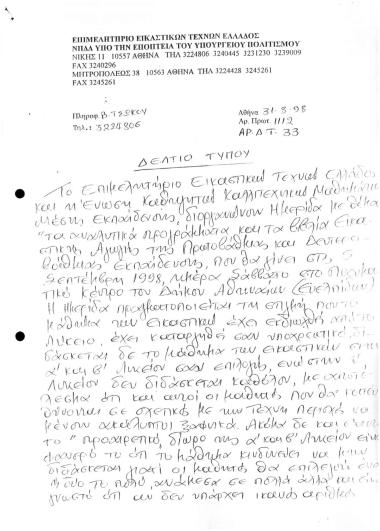 ΕΠΙΜΕΛΗΤΗΡΙΟ ΕΙΚΑΣΤΙΚΩΝ ΤΕΧΝΩΝ ΕΛΛΑΔΟΣ
ΝΠΔΔ ΥΠΟ ΤΗΝ ΕΠΟΠΤΕΙΑ ΤΟΥ ΥΠΟΥΡΓΕΙΟΥ ΠΟΛΙΤΙΣΜΟΥ
ΝΙΚΗΣ 11 10557 ΑΘΗΝΑ ΤΗΛ 3224806 3240445 3231230 3239009
FAX 3240296
ΜΗΤΡΟΠΟΛΕΩΣ 38 10563 ΑΘΗΝΑ ΤΗΛ 3224428 3245261
FAX 3245261
Αθήνα 31-8-98
Πληροφ. Β. ΤΣΕΚΟΥ
Αρ. Πρωτ. 1112
Τηλ.: 3224806
ΑΡ. Δ Τ. 33
ΔΕΛΤΙΟ ΤΥΠΟΥ
Το Επιμελητήριο Εικαστικών Τεχνών Ελλάδος
και η Ένωση Καθηγητών Καλλιτεχνικών Μαθημάτων
Μέσης Εκπαίδευσης, διοργανώνουν Ημερίδα με θέμα
"τα αναλυτικά προγράμματα και τα βιβλία Εικα-
στικής Αγωγής της Πρωτοβάθμιας και Δευτερο-
βάθμιας Εκπαίδευσης, που θα γίνει στις 5
Σεπτέμβρη 1998, ημέρα Σάββατο στο Πνευμα-
τικό Κέντρο του Δήμου Αθηναίων
Η Ημερίδα πραγματοποιείται τη στιγμή που το
μάθημα των εικαστικών έχει εκδιωχθεί από το
Λύκειο, έχει καταργηθεί σαν υποχρεωτικό, δι-
δάσκεται δε το μάθημα των εικαστικών στην
α' και β' Λυκείου σαν επιλογής, ενώ στην γ'
Λυκείου δεν διδάσκεται καθόλου, με αποτέ-
λεσμα ότι και αυτοί οι μαθητές που θα
σε σχετικές με την Τέχνη
μένουν ακάλυπτοι ξαφνικά. Ακόμα δε και
το " προαιρετικό, δίωρο της α' και β' Λυκείου είναι
φανερό το ότι το μάθημα κινδυνεύει να μην
διδάσκεται γιατί οι μαθητές θα επιλέγουν ένα
ή δύο το πολύ, ανάμεσα σε πολλά άλλα και είναι
γνωστό ότι αν δεν υπάρχει ικανός αριθμός